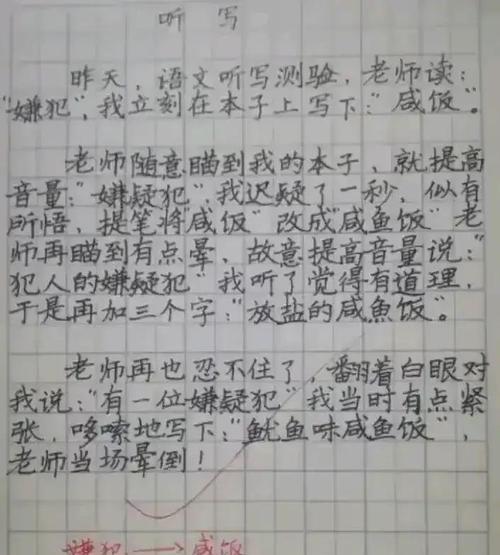 听 写
昨天，语文听写测验，老师读：
“嫌犯”，我立刻在本子上写下：“咸饭”。
老师随意瞄到我的本子，就提高
音量：“嫌疑犯”，我迟疑了一秒，似有
所悟，提笔将“咸饭”改成“咸鱼饭”老
师再瞄到有点晕，故意提高音量说：“
犯人的嫌疑犯”我听了觉得有道理，
于是再加三个字：“放盐的咸鱼饭”。
老师再也忍不住了，翻着白眼对
我说：“有一位嫌疑犯”我当时有点紧
张，哆嗦地写下：“鱿鱼味咸鱼饭”，
老师当场晕倒！
嫌犯→咸饭